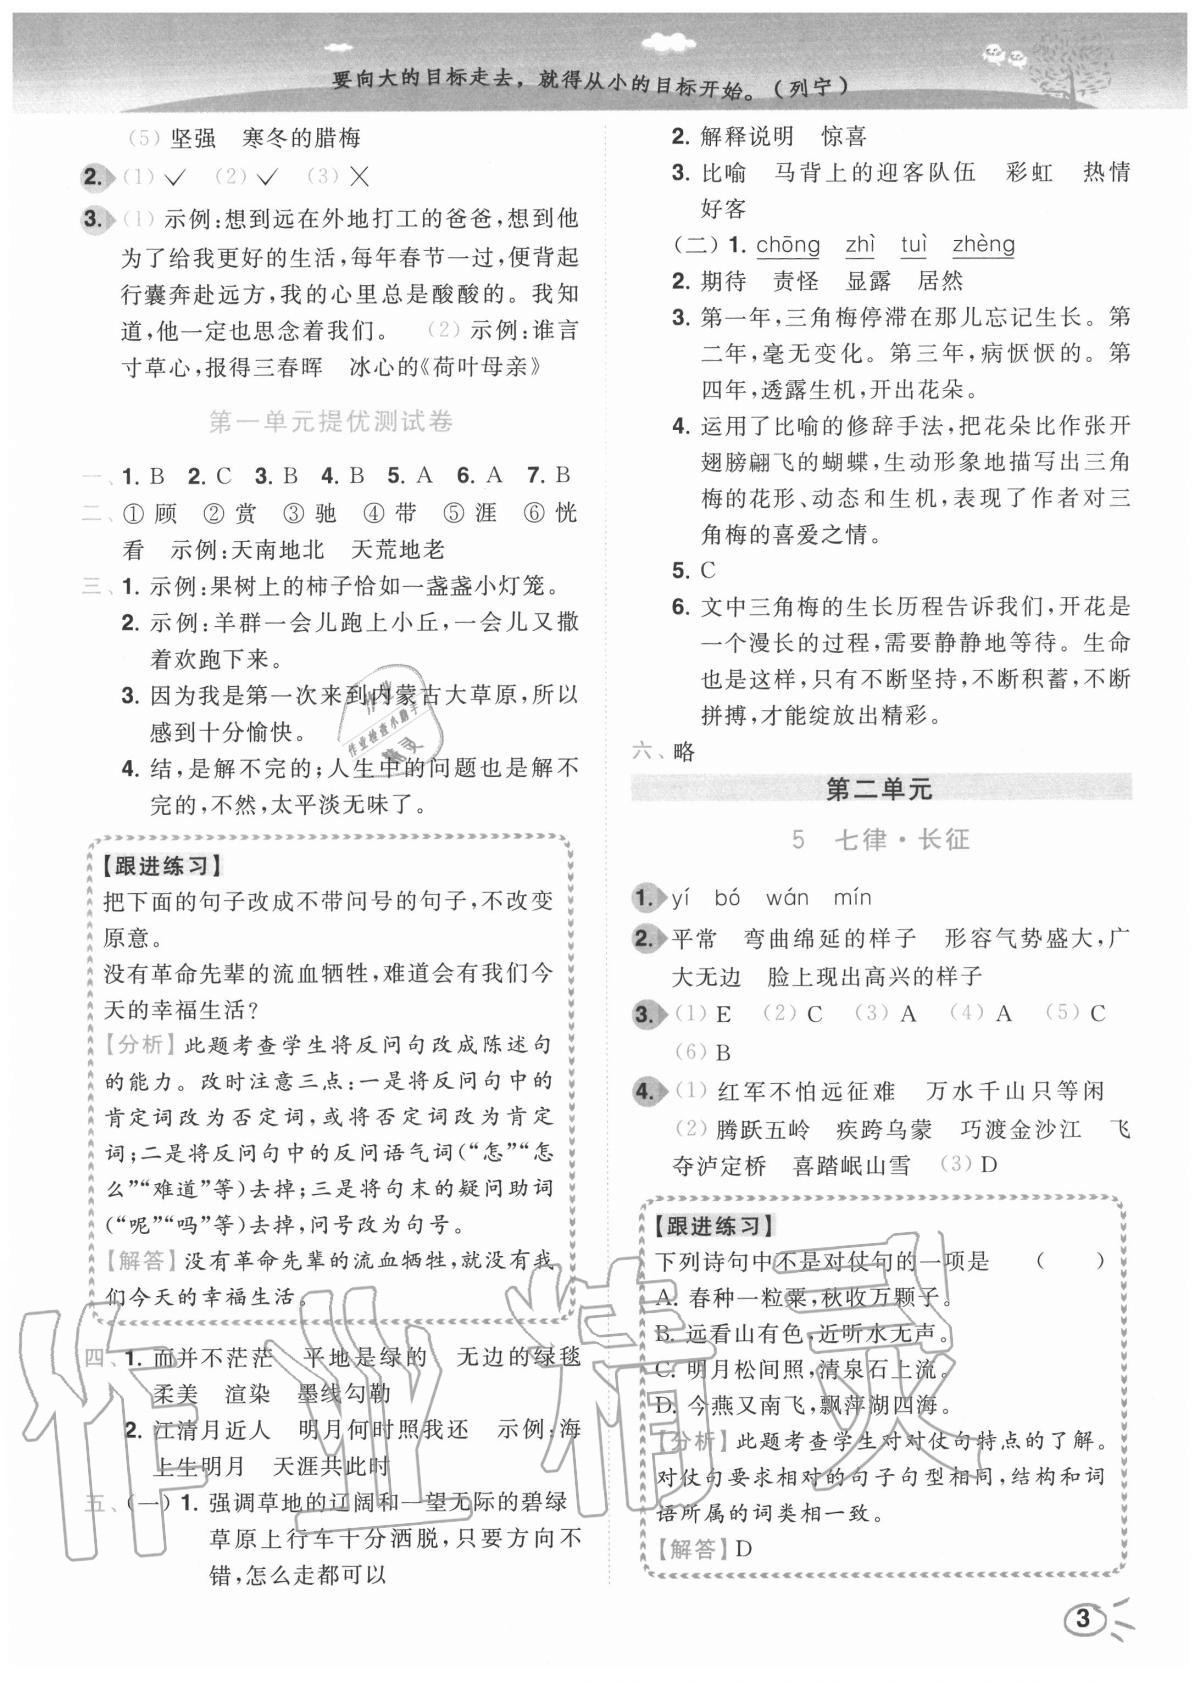 要向大的目标走去，就得从小的目标开始。（列宁）
(5) 坚强　寒冬的腊梅
2. (1) ✓　(2) ✓　(3) ✗
3. (1) 示例:想到远在外地打工的爸爸,想到他
为了给我更好的生活,每年春节一过,便背起
行囊奔赴远方,我的心里总是酸酸的。我知
道,他一定也思念着我们。　(2) 示例:谁言
寸草心,报得三春晖　冰心的《荷叶母亲》
第一单元提优测试卷
一、1. B　2. C　3. B　4. B　5. A　6. A　7. B
二、① 顾　② 赏　③ 驰　④ 带　⑤ 涯　⑥ 恍
看　示例:天南地北　天荒地老
三、1. 示例:果树上的柿子恰如一盏盏小灯笼。
2. 示例:羊群一会儿跑上小丘,一会儿又撒
着欢跑下来。
3. 因为我是第一次来到内蒙古大草原,所以
感到十分愉快。
4. 结,是解不完的;人生中的问题也是解不
完的,不然,太平淡无味了。
【跟进练习】
把下面的句子改成不带问号的句子,不改变
原意。
没有革命先辈的流血牺牲,难道会有我们今
天的幸福生活?
【分析】此题考查学生将反问句改成陈述句
的能力。改时注意三点:一是将反问句中的
肯定词改为否定词,或将否定词改为肯定
词;二是将反问句中的反问语气词(“怎”“怎
么”“难道”等)去掉;三是将句末的疑问助词
(“呢”“吗”等)去掉,问号改为句号。
【解答】没有革命先辈的流血牺牲,就没有我
们今天的幸福生活。
四、1. 而并不茫茫　平地是绿的　无边的绿毯
柔美　渲染　墨线勾勒
2. 江清月近人　明月何时照我还　示例:海
上生明月　天涯共此时
五、(一) 1. 强调草地的辽阔和一望无际的碧绿
草原上行车十分洒脱,只要方向不
错,怎么走都可以
2. 解释说明　惊喜
3. 比喻　马背上的迎客队伍　彩虹　热情
好客
(二) 1. chōng　zhì　tuì　zhèng
2. 期待　责怪　显露　居然
3. 第一年,三角梅停滞在那儿忘记生长。第
二年,毫无变化。第三年,病恹恹的。第
四年,透露生机,开出花朵。
4. 运用了比喻的修辞手法,把花朵比作张开
翅膀翩飞的蝴蝶,生动形象地描写出三角
梅的花形、动态和生机,表现了作者对三
角梅的喜爱之情。
5. C
6. 文中三角梅的生长历程告诉我们,开花是
一个漫长的过程,需要静静地等待。生命
也是这样,只有不断坚持,不断积蓄,不断
拼搏,才能绽放出精彩。
六、略
第二单元
5　七律·长征
1. yí　bó　wán　mín
2. 平常　弯曲绵延的样子　形容气势盛大,广
大无边　脸上现出高兴的样子
3. (1) E　(2) C　(3) A　(4) A　(5) C
(6) B
4. (1) 红军不怕远征难　万水千山只等闲
(2) 腾跃五岭　疾跨乌蒙　巧渡金沙江　飞
夺泸定桥　喜踏岷山雪　(3) D
【跟进练习】
下列诗句中不是对仗句的一项是　(　　)
A. 春种一粒粟,秋收万颗子。
B. 远看山有色,近听水无声。
C. 明月松间照,清泉石上流。
D. 今燕又南飞,飘萍湖四海。
【分析】此题考查学生对对仗句特点的了解。
对仗句要求相对的句子句型相同,结构和词
语所属的词类相一致。
【解答】D
3
作业
作业检查小助手
精灵
作业精灵